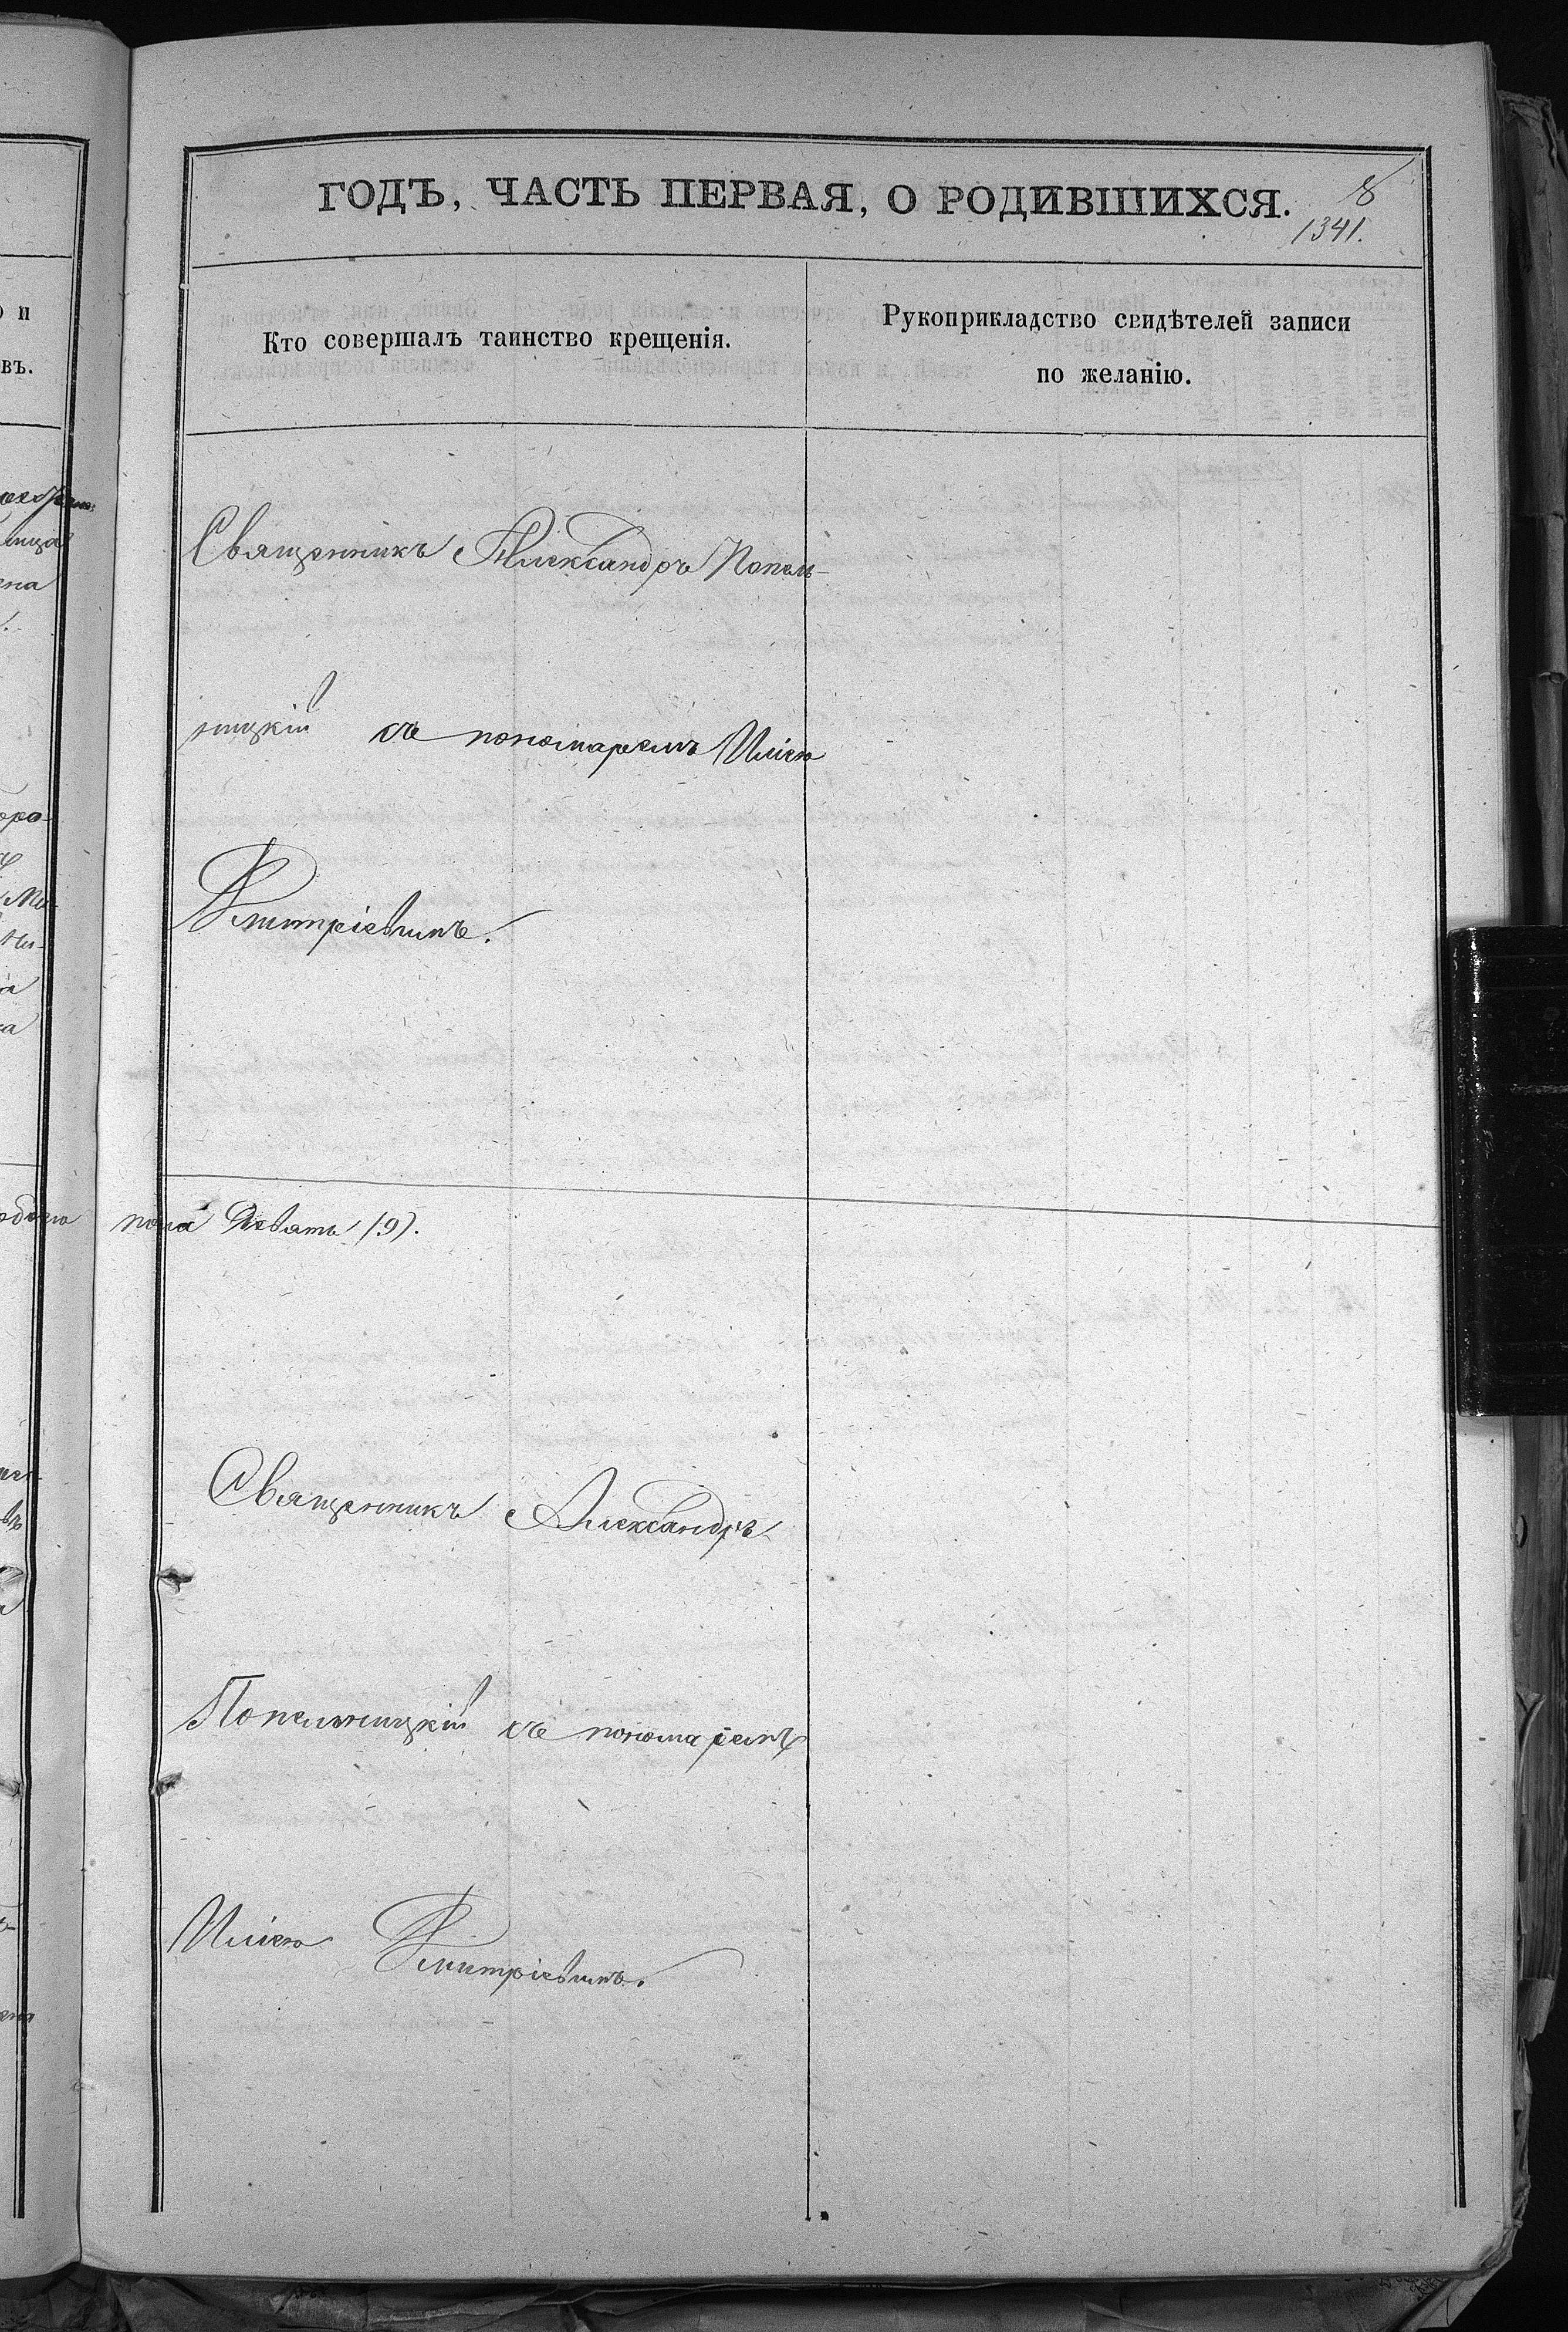 ГОДЪ, ЧАСТЬ ПЕРВАЯ, О РОДИВШИХСЯ.
8
1341.
Кто совершалъ таинство крещенія.
Рукоприкладство свидѣтелей записи
по желанію.
и
въ.
Священникъ Александръ Попель-
ницкій съ пономаремъ Иліею
Дмитріевымъ.
пола девять (9).
Священникъ Александръ
Попельницкій съ пономаремъ
Иліею Дмитріевымъ.